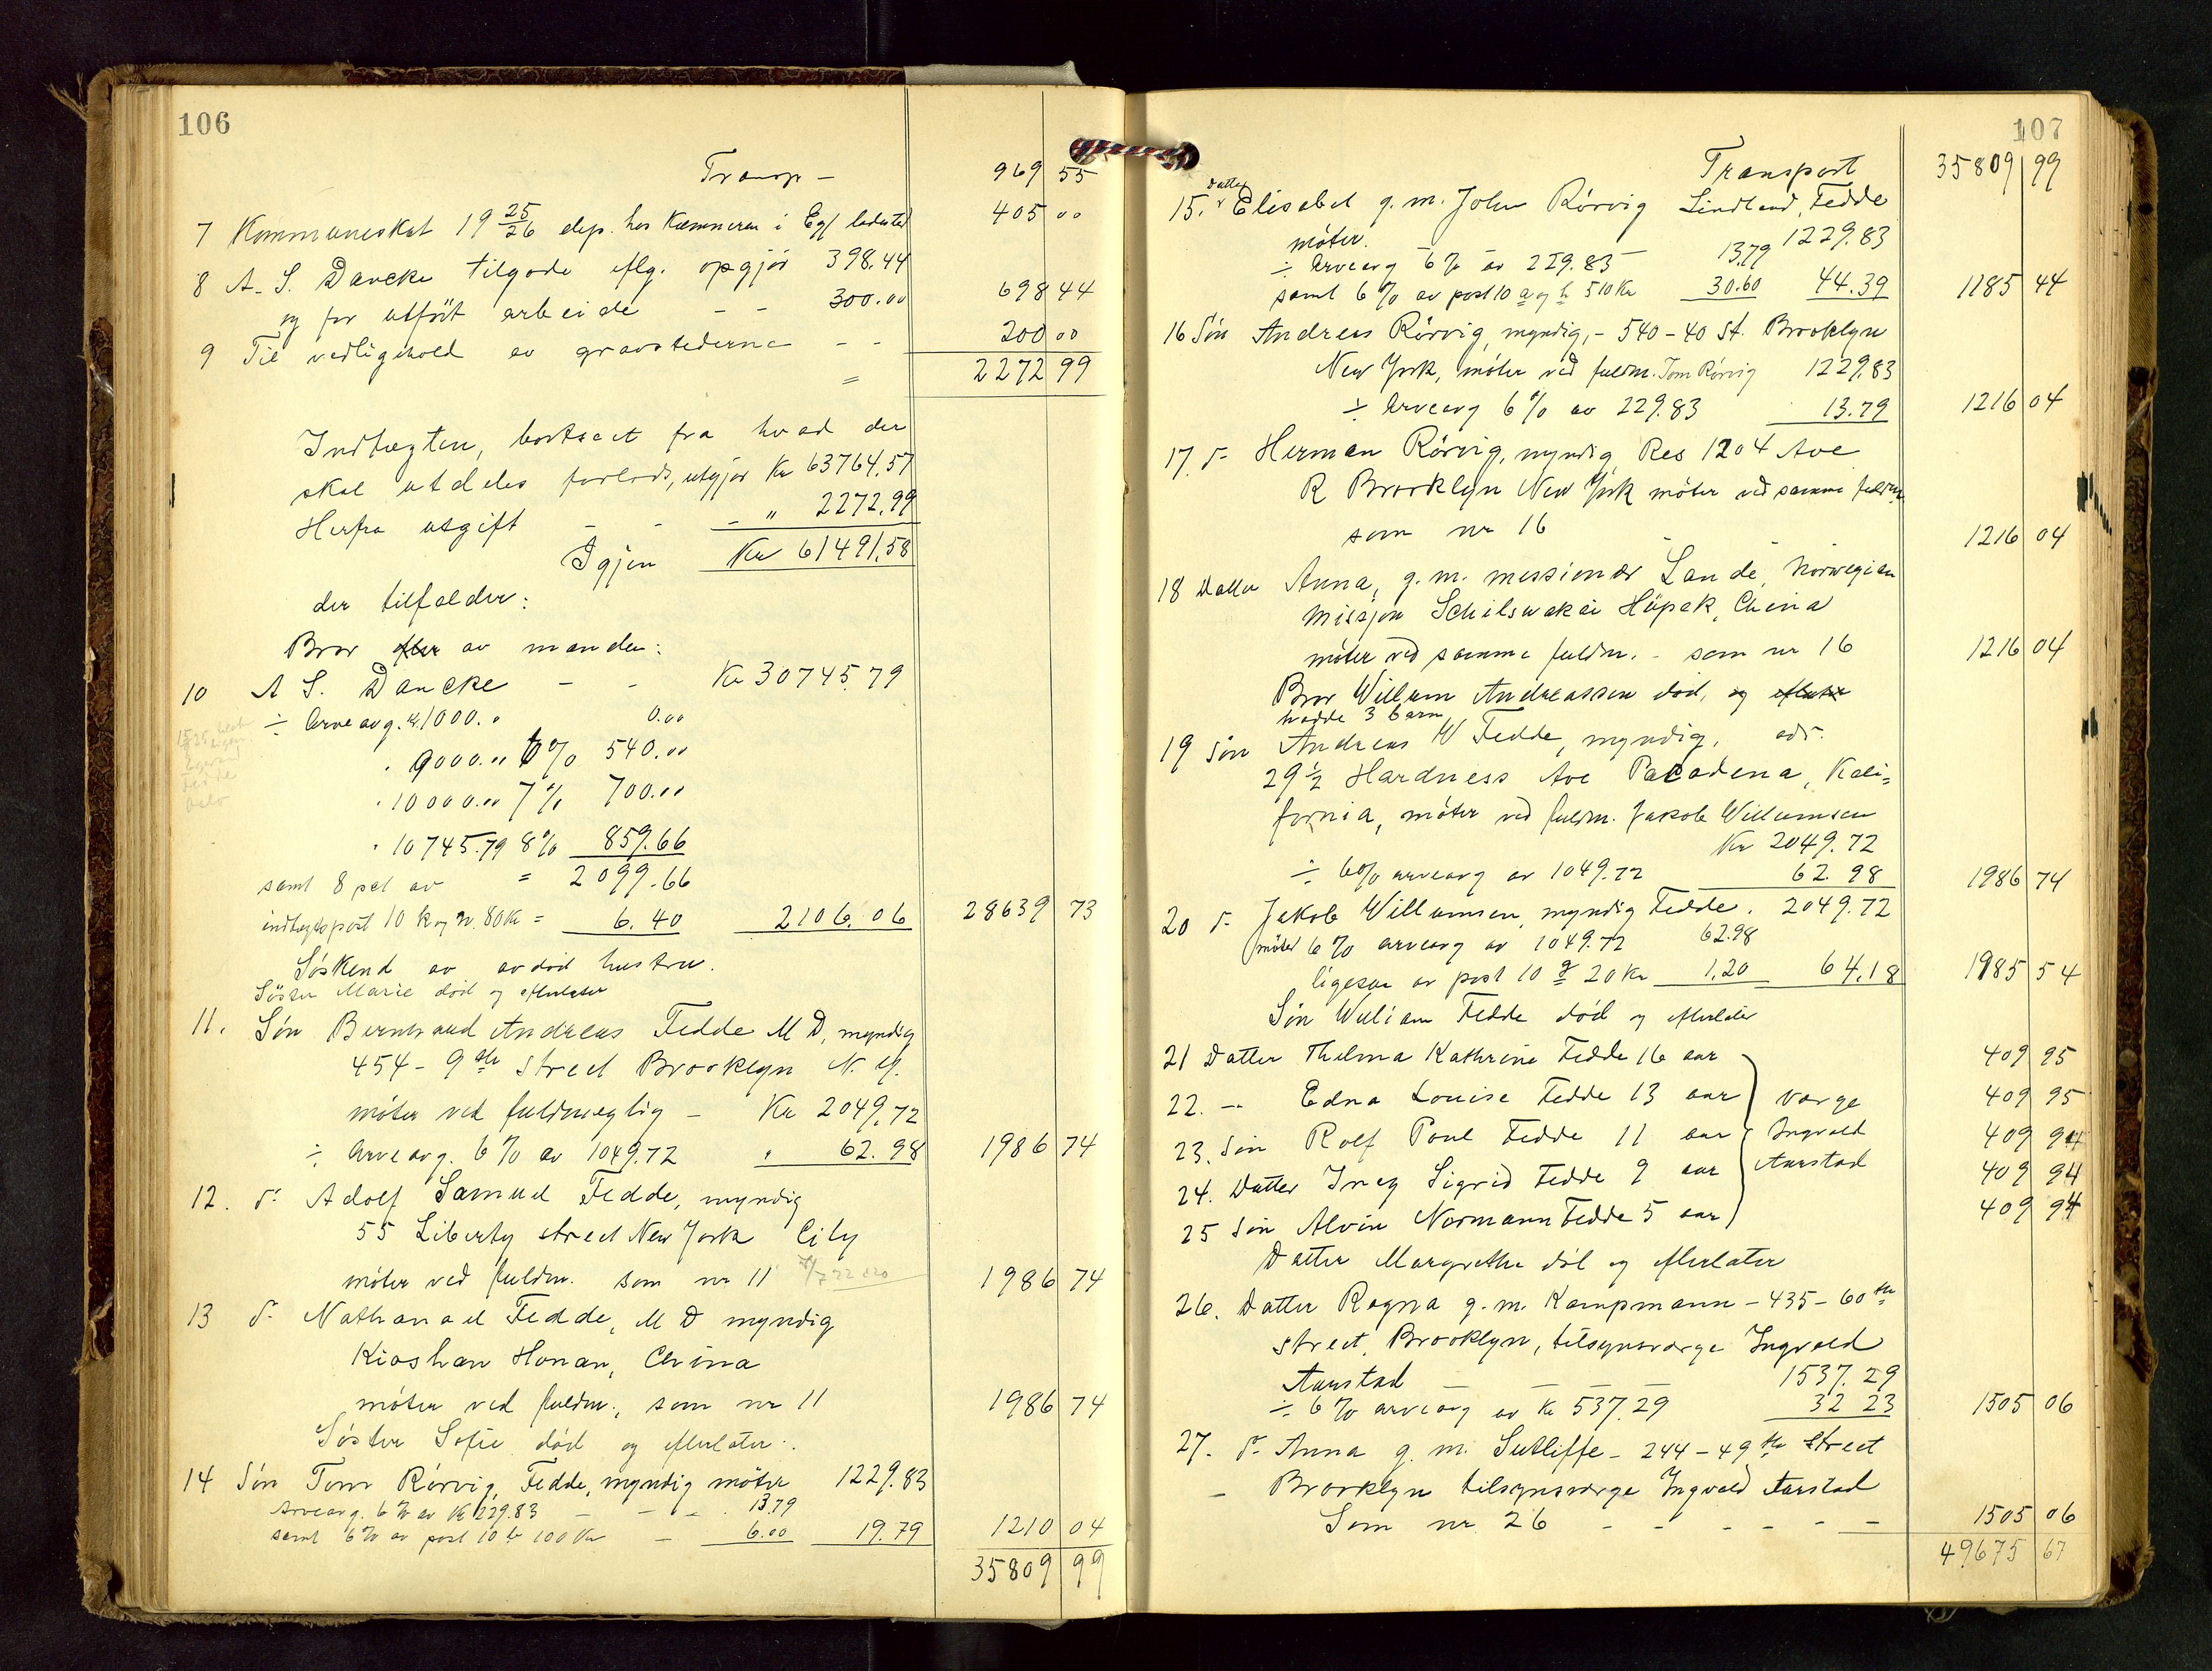 106
Transp – 969 55
7 Kommuneskat 19 25/26 dep. hos Kæmneren i Eg/ ladested 405 00
8 A. S. Dancke tilgode eflg. opgjör 398.44
og for utfört arbeide – – 300.00 698 44
9 Til vedligehold av gravstederne – – 200 00
= 2272 99
Indtægten, bortseet fra hvad der
skal utdeles forlods, utgjør Kr 63764.57
Herfra utgift – – – " 2272.99
Igjen Kr 61491.58
der tilfalder:
Bror efter av manden:
10 A S. Dancke – – Kr 30745.79
÷ Arveavg. 1000. " 0.00
" 9000.00 6% 540.00
" 10000.00 7% 700.00
" 10745.79 8% 859.66
samt 8 pct av = 2099.66
indtægtspost 10 k og n. 80 Kr = 6.40 2106.06 28639 73
Söskend av avdöd hustru.
Söster Marie död og efterlater
11. Sön Bernhard Andreas Fedde M D, myndig
454 – 9th street Brooklyn N. Y.
möter ved fuldmægtig – Kr 2049.72
÷ Arveavg. 6% av 1049.72 " 62.98 1986 74
12. do Adolf Samuel Fedde, myndig
55 Liberty street New York City
möter ved fuldm. som nr 11 1986 74
13 do Nathanael Fedde, M D myndig
Kioshan Honan, China
möter ved fuldm., som nr 11 1986 74
Söster Sofie död og efterlater.
14 Sön Tom Rörvig, Fedde, myndig möter 1229.83
Arveavg. 6% av Kr 229.83 – – – 13.79
samt 6% av post 10 b 100 Kr – 6.00 19.79 1210 04
35809 99
107
Transport 35809 99
15. Datter Elisabet g. m. John Rörvig Lindland, Fedde
möter. 1229.83
÷ Arveavg 6% av 229.83 – 13.79
samt 6% av post 10 a og h 510 Kr 30.60 44.39 1185 44
16 Sön Andreas Rörvig, myndig, – 540 – 40 St. Brooklyn
New York, möter ved fuldm. Tom Rörvig 1229.83
÷ Arveavg 6% av 229.83 13.79 1216 04
17. do Herman Rörvig, myndig, Res 1204 Ave
R Brooklyn New York möter ved samme fuldm.
som nr 16 1216 04
18 Datter Anna, g. m. missionær Lande, Norwegian
Missjon Schilswakai Hüpek, China
möter ved samme fuldm. – som nr 16 1216 04
Bror Willum Andreassen död, og efterlater
hadde 3 barn
19 Sön Andreas W Fedde, myndig, adr.
29½ Hardness Ave Pacadena, Kali=
fornia, möter ved fuldm. Jakob Willumsen
Kr 2049.72
÷ 6% arveavg av 1049.72 62.98 1986 74
20 do Jakob Willumsen, myndig Fedde. 2049.72
möter 6% arveavg av 1049.72 62.98
ligesaa av post 10 g 20 Kr 1.20 64.18 1985 54
Sön William Fedde död og efterlater
21 Datter Thelma Kathrine Fedde 16 aar 409 95
22. –" Edna Louise Fedde 13 aar værge 409 95
23. Sön Rolf Poul Fedde 11 aar Ingvald 409 94
24. Datter Inez Sigrid Fedde 9 aar Aarstad 409 94
25 Sön Alvin Normann Fedde 5 aar 409 94
Datter Margrethe död og efterlater
26. Datter Ragna g. m. Kampmann – 435 – 60th
street, Brooklyn, tilsynsværge Ingvald
Aarstad – – – – 1537.29
÷ 6% arveavg av Kr 537.29 32 23 1505 06
27. do Anna g. m. Sutliffe – 244 – 49th street
– Brooklyn tilsynsværge Ingvald Aarstad
Som nr. 26 – – – – – – 1505 06
49675 67